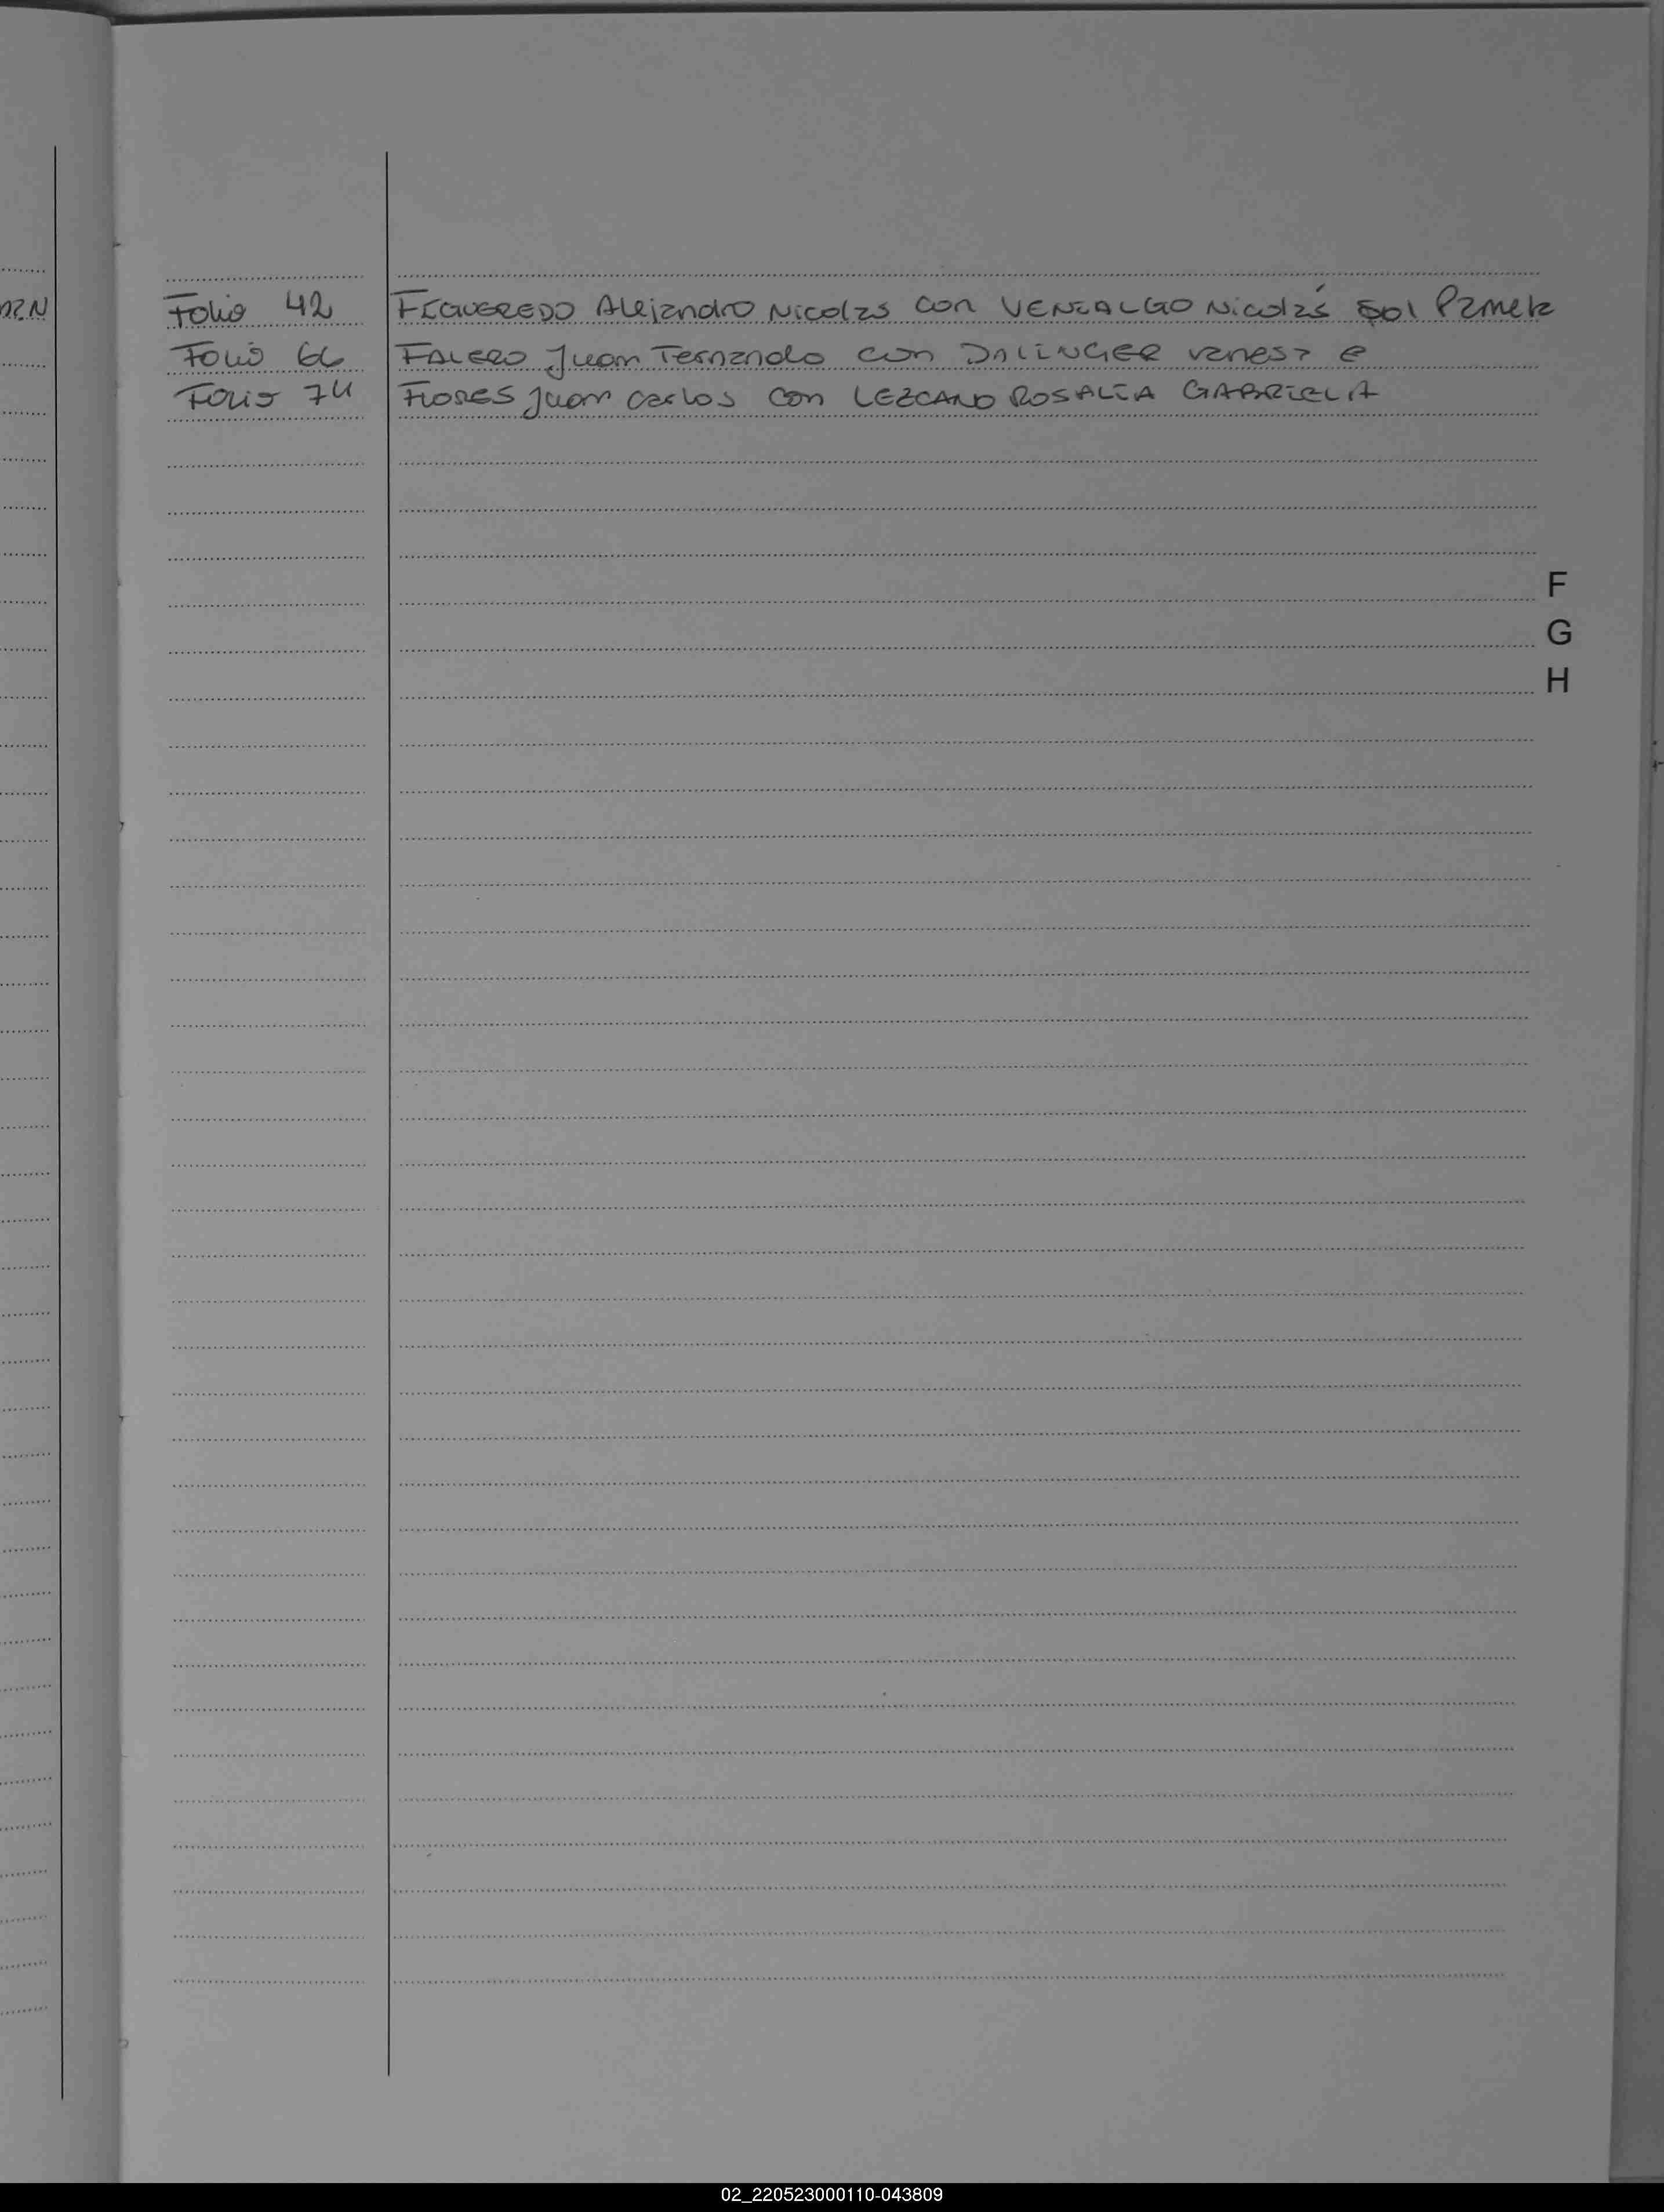 Folio 42 FIGUEREDO Alejandro Nicolas con VENIALGO Nicolás Sol Pamela
Folio 66 FALERO Juan Fernando con DALINGER Vanesa e
Folio 74 FLORES Juan Carlos con LEZCANO ROSALIA GABRIELA
F
G
H
02_220523000110-043809